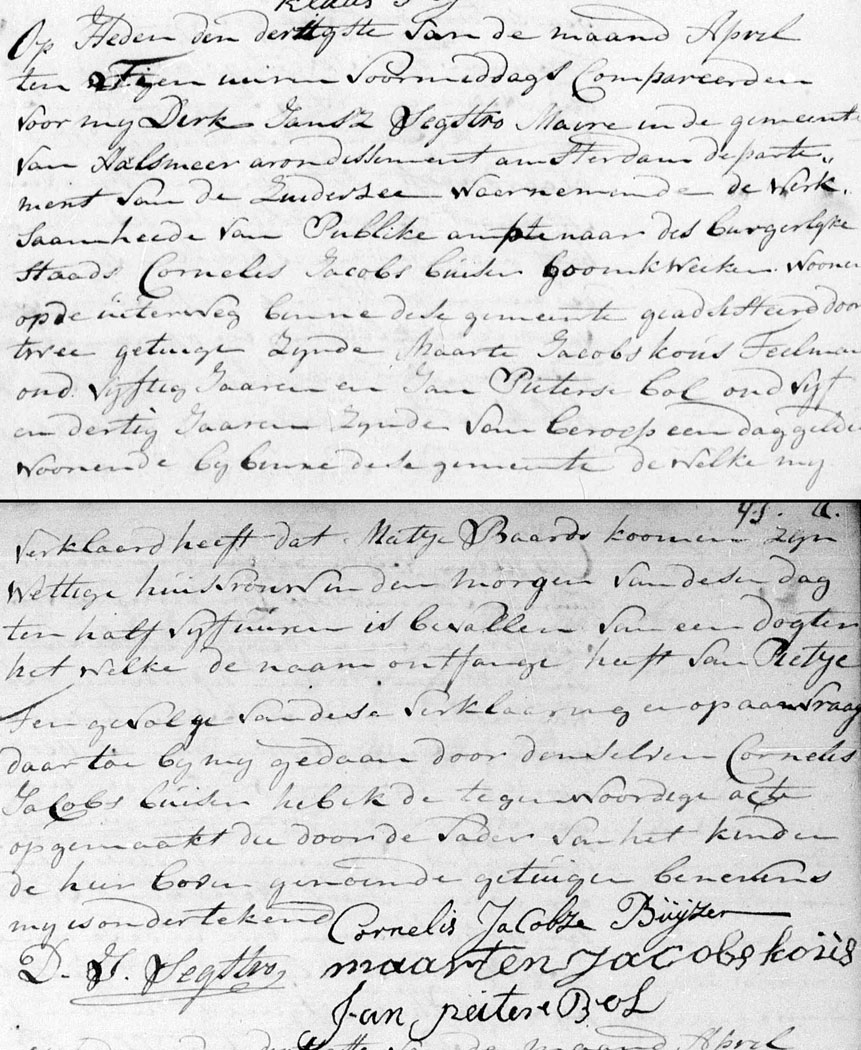 Klaas
Op Heden den dertigste van de maand April
ten Tigen uuren voormiddags Compareerden
voor my Dirk Jansz Segstro Maire in de gemeente
van Aalsmeer arondissement amsterdam departe„
ment van de Zuidersee waernemende de werk„
saamheede van Publike amptenaar des burgerlyke
staads Cornelis Jacobs buisen boomkweeker woonen
op de uiterweg binne dese gemeente geadsisteerd door
twee getuige zynde Maarte Jacobs kous Teelman
oud vyftig Jaaren en Jan Pieterse bol oud vyf
en dertig Jaaren zynde van beroep een daggelde
woonende by binne dese gemeente de welke my
45. a.
verklaard heeft dat Matye Baards koomen zyn
wettige huisvrouw in den morgen van desen dag
ten half vyf uuren is bevallen van een dogter
het welke de naam ontfange heeft van Pietye
Ten gevolge van dese verklaaring en op aanvraag
daar toe by my gedaan door denselven Cornelis
Jacobs buisen heb ik de tegenwoordige acte
opgemaakt die door de vader van het kinden
de hier boven genoemde getuigen benevens
my is ondertekend
Cornelis Jacobze Büyzer
D. J. Segstro
maarten Jacobs koüs
Jan peiterse Bol
maand April